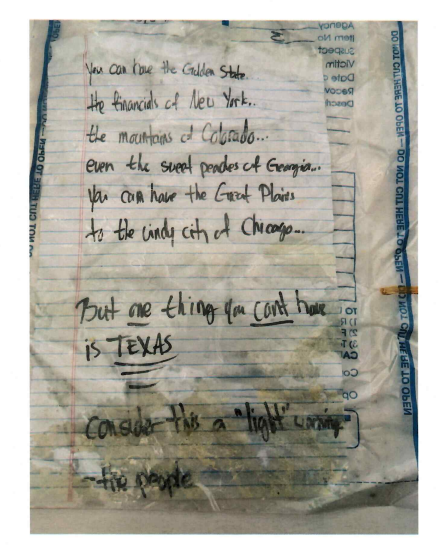 You can have the Golden State.
the financials of New York..
the mountains of Colorado...
even the sweet peaches of Georgia...
You can have the Great Plains
to the windy city of Chicago...
But one thing you cant have
is TEXAS
Consider this a "light" warning
-the people
Agency
Item No
3
Suspect
Victim
Date
Recov
Descri
DO NOT CUT HERE TO OPEN — DO NOT CUT HERE TO OPEN — DO NOT CUT HERE TO OPEN